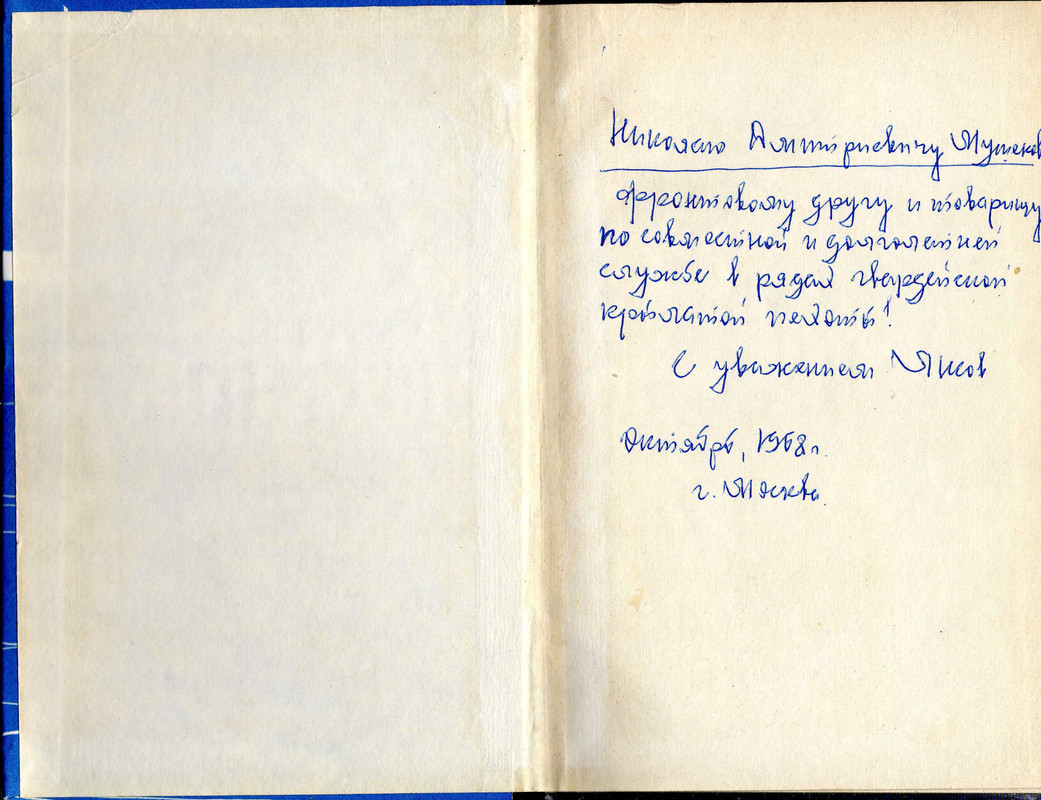 Николаю Дмитриевичу
фронтовому другу и товарищу
по совместной и долголетней
службе в рядах гвардейской
крылатой пехоты!
С уважением
Октябрь, 1968 г.
г. Москва.